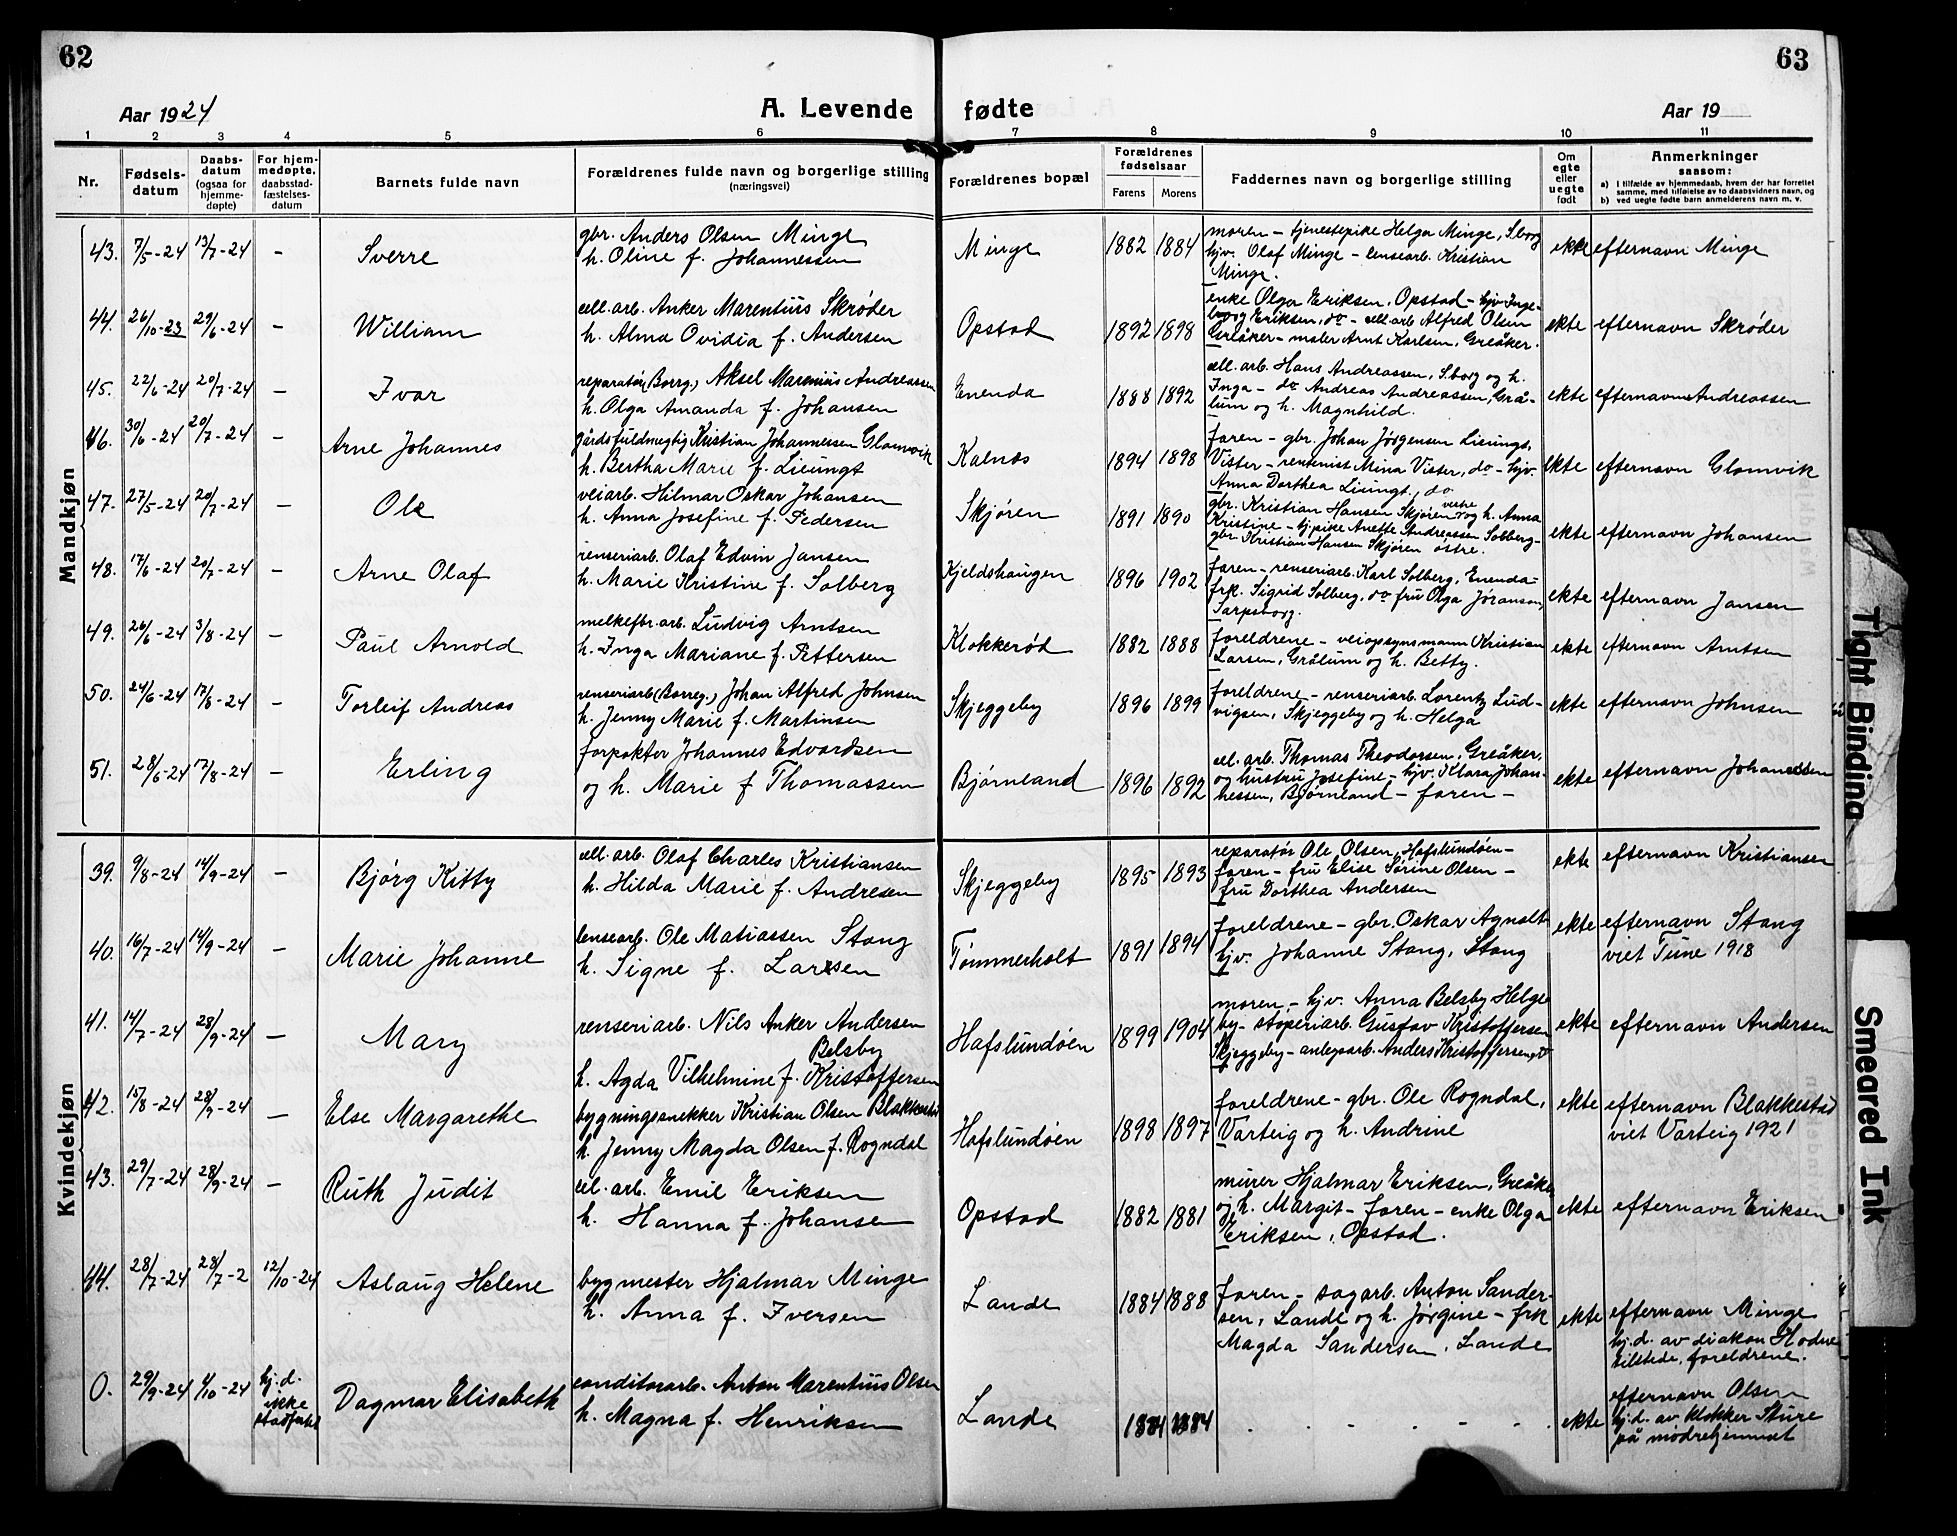 62
63
Aar 1924
A. Levende fødte
Aar 19
1 2 3 4 5 6 7 8 9 10 11
Nr.
Fødsels-
datum
Daabs-
datum
(ogsaa for
hjemme-
døpte)
For hjem-
medøpte,
daabsstad-
fæstelses-
datum
Barnets fulde navn
Forældrenes fulde navn og borgerlige stilling
(næringsvei)
Forældrenes bopæl
Forældrenes
fødselsaar
Farens Morens
Faddernes navn og borgerlige stilling
Om
egte
eller
uegte
født
Anmerkninger
saasom:
a) I tilfælde av hjemmedaab, hvem der har forrettet
samme, med tilføielse av to daabsvidners navn, og
b) ved uegte fødte barn anmelderens navn m. v.
Mandkjøn
43. 7/5-24 13/7-24 - Sverre
gbr. Anders Olsen Minge
h. Oline f. Johannessen
Minge 1882 1884
moren - tjenestepike Helga Minge, S.borg
hjv. Olaf Minge - lensearb. Kristian
Minge.
ekte efternavn Minge
44. 26/10-23 29/6-24 - William
cell. arb. Anker Marentius Skrøder
h. Alma Ovidia f. Andersen
Opstad 1892 1898
enke Olga Eriksen, Opstad - hjv. Inge-
borg Eriksen, do - cell. arb. Alfred Olsen
Greåker - maler Arnt Karlsen, Greåker.
ekte efternavn Skrøder
45. 22/6-24 20/7-24 - Ivar
reparatør (Borrg.) Aksel Marenius Andreassen
h. Olga Amanda f. Johansen
Enenda 1888 1892
cell. arb. Hans Andreassen, S.borg og h.
Inga - do Andreas Andreassen, Grå-
lum og h. Magnhild.
ekte efternavn Andreassen
46. 30/6-24 20/7-24 - Arne Johannes
gårdsfuldmegtig Kristian Johannessen Glomvik
h. Bertha Marie f. Lieungt
Kalnes 1894 1898
faren - gbr. Johan Jørgensen Lieungt,
Vister - rentenist Mina Vister, do - hjv.
Anna Dorthea Liungt, do
ekte efternavn Glomvik
47. 27/5-24 20/7-24 - Ole
veiarb. Hilmar Oskar Johansen
h. Anna Josefine f. Pedersen
Skjøren 1891 1890
gbr. Kristian Hansen Skjøren vestre og h. Anna
Kristine - tj.pike Anette Andreassen Solberg -
gbr. Kristian Hansen Skjøren østre.
ekte efternavn Johansen
48. 17/6-24 20/7-24 - Arne Olaf
renseriarb. Olaf Edvin Jansen
h. Marie Kristine f. Solberg
Kjeldshaugen 1896 1902
faren - renseriarb. Karl Solberg, Enenda -
frk. Sigrid Solberg, do fru Olga Jøranson,
Sarpsborg.
ekte efternavn Jansen
49. 26/6-24 3/8-24 - Paul Arnold
melkefbr. arb. Ludvig Arntsen
h. Inga Mariane f. Pettersen
Klokkerød 1882 1888
foreldrene - veiopsynsmann Kristian
Larsen, Grålum og h. Betty.
ekte efternavn Arntsen
50. 24/6-24 17/8-24 - Torleif Andreas
renseriarb. (Borreg.) Johan Alfred Johnsen
h. Jenny Marie f. Martinsen
Skjeggeby 1896 1899
foreldrene - renseriarb. Lorentz Lud-
vigsen, Skjeggeby og h. Helga
ekte efternavn Johnsen
51. 28/6-24 17/8-24 - Erling
forpakter Johannes Edvardsen
og h. Marie f Thomassen
Bjørnland 1896 1892
cel. arb. Thomas Theodorsen, Greåker,
og hustru Josefine - hjv. Klara Johan-
nessen, Bjørnland - faren -
ekte efternavn Johanessen
Kvindekjøn
39. 9/8-24 14/9-24 - Bjørg Kitty
cell. arb. Olaf Charles Kristiansen
h. Hilda Marie f. Andresen
Skjeggeby 1895 1893
reparatør Ole Olsen, Hafslundøen -
faren - fru Elise Sørine Olsen -
fru Dorthea Andersen
ekte efternavn Kristiansen
40. 16/7-24 14/9-24 - Marie Johanne
lensearb. Ole Matiassen Stang
h. Signe f. Larsen
Tømmerholt 1891 1894
foreldrene - gbr. Oskar Agnalt
hjv. Johanne Stang, Stang
ekte efternavn Stang
viet Tune 1918
41. 14/7-24 28/9-24 - Mary
renseriarb. Nils Anker Andersen
Belsby
h. Agda Vilhelmine f. Kristoffersen
Hafslundøen 1899 1904
moren - hjv. Anna Belsby Helge-
by - støperiarb. Gustav Kristoffersen
Skjeggeby - anlegsarb. Anders Kristoffersen, do
ekte efternavn Andersen
42. 15/8-24 28/9-24 - Else Margarethe
bygningssnekker Kristian Olsen Blakkestad
h. Jenny Magda Olsen f. Rogndal
Hafslundøen 1898 1897
foreldrene - gbr. Ole Rogndal,
Varteig og h. Andrine
ekte efternavn Blakkestad
viet Varteig 1921
43. 29/7-24 28/9-24 - Ruth Judit
cel. arb. Emil Eriksen
h. Hanna f. Johansen
Opstad 1882 1881
murer Hjalmar Eriksen, Greåker
og h. Margit - faren - enke Olga
Eriksen, Opstad.
ekte efternavn Eriksen
44. 28/7-24 28/7-2 12/10-24 Aslaug Helene
bygmester Hjalmar Minge
h. Anna f. Iversen
Lande 1884 1888
faren - sagarb. Anton Sander-
sen, Lande og h. Jørgine - frk
Magda Sandersen, Lande
ekte efternavn Minge
hj.d. av diakon Hodne
tilstede, foreldrene.
0. 29/9-24 4/10-24 hj.d.
ikke
stadfestet
Dagmar Elisabeth
conditorarb. Anton Marentius Olsen
h. Magna f. Henriksen
Lande 1884 1884
ekte efternavn Olsen
hj.d. av klokker Sture
på mødrehjemmet
Tight Binding
Smeared Ink